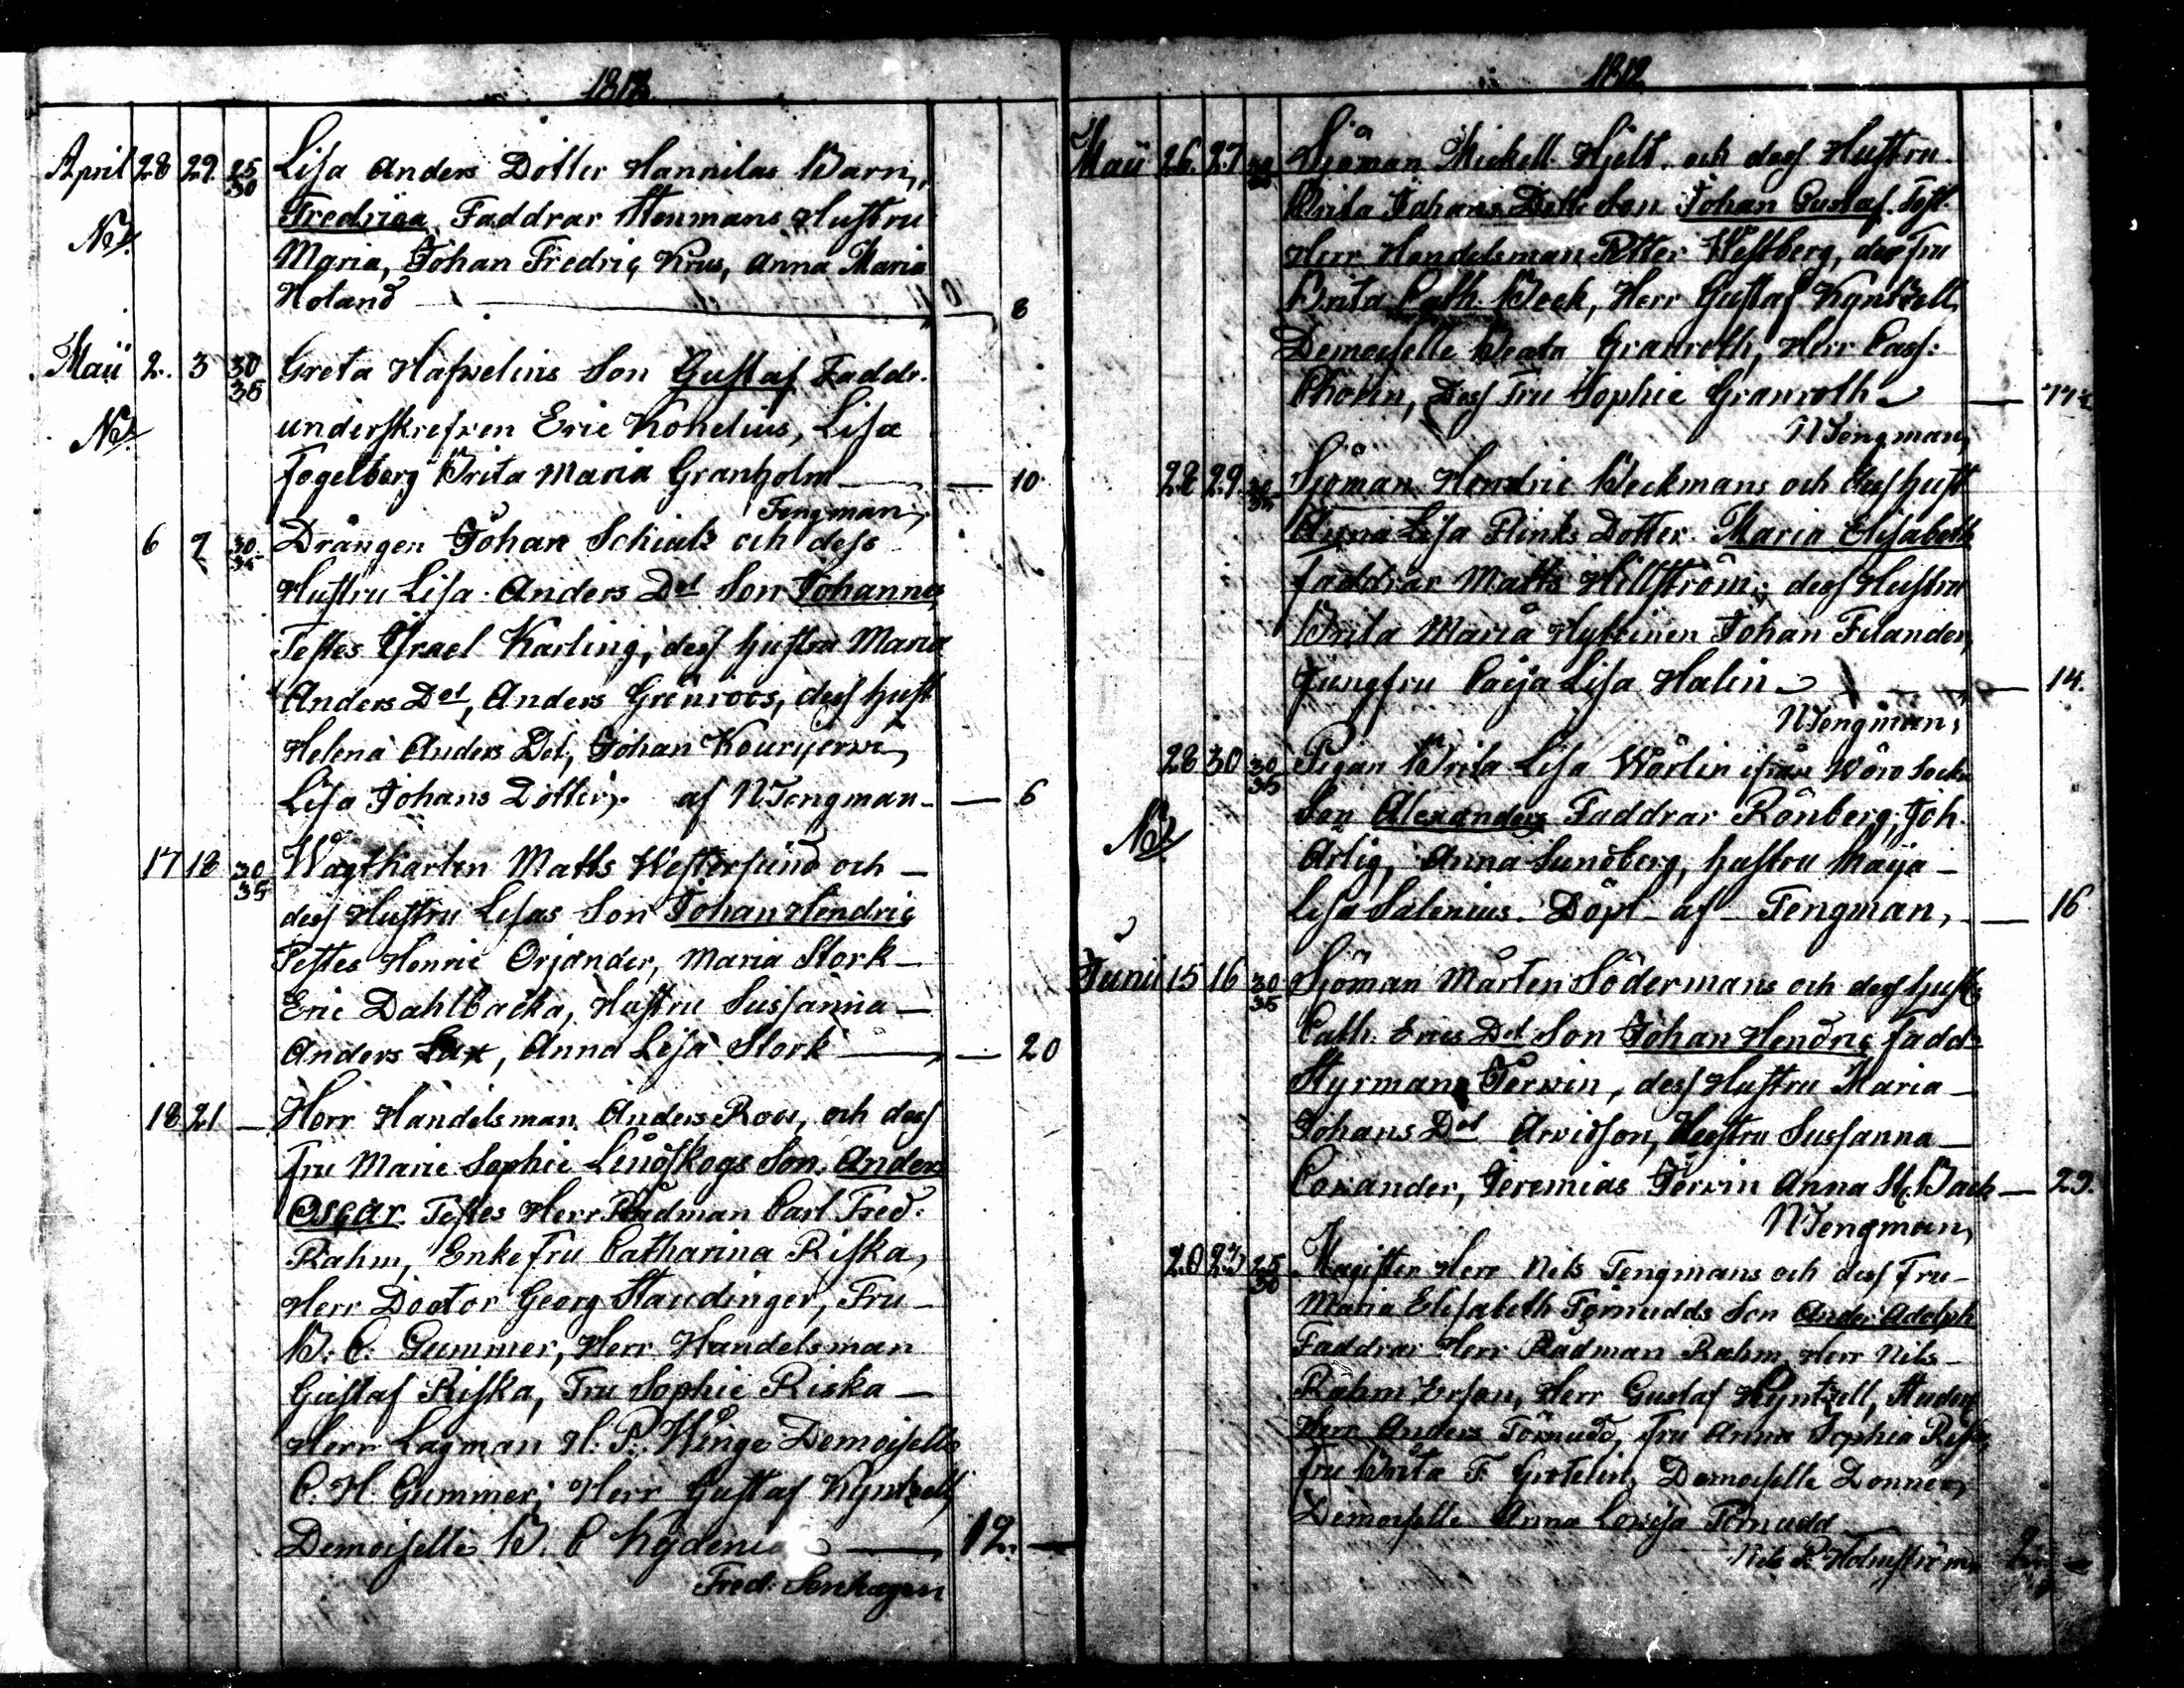 1812
April 28 29 25/30 Lisa Anders Dotter Hannilas Barn,
Fredrica Faddrar Stenmans Hustru
NB.
Maria, Johan Fredric Krus, Anna Maria
Noland — 8
Maii 2. 3 30/35 Greta Hafwelius Son Gustaf Faddr.
underskrefwen Eric Konelius, Lisa
NB.
Fogelberg Brita Maria Granholm — 10
Tengman
6 7 30/35 Drängen Johan Schiulz och dess
Hustru Lisa Anders Dot. Son Johannes
Testes Israel Karling, dess hustru Maria
Anders Dot, Anders Grönroos, dess hust
Helena Anders Dot, Johan
Lisa Johans Dotter, af N Tengman — 6
17 18 30/35 Wagtkarlen Matts Westersund och —
dess Hustru Lisas Son Johan Hendric
Testes Henric Orjander, Maria Stork —
Eric Dahlbacka, Hustru Sussanna —
Anders Lax, Anna Lisa Stork — 20
18 21 — Herr Handelsman Anders Roos, och dess
Fru Marie Sophie Lindskogs Son Anders
Oscar Testes Herr Rådman Carl Fred.
Rahm, Enke Fru Catharina Riska,
Herr Doctor Georg Staudinger, Fru —
B: C: Gummer, Herr Handelsman
Gustaf Riska, Fru Sophie Riska —
Herr Lagman H. P. Winge Demoiselle
C. H. Gummer, Herr Gustaf Kyntzell,
Demoiselle B. C — 12. —
Fred:
1812
Maii 26. 27 Sjöman Mickell Hjelt och dess Hustru
Brita Johans Dottr Son Johan Gustaf. Test.
Herr Handelsman Petter Westberg, dess Fru
Brita Cath. Beck, Herr Gustaf Kyntzell,
Demoiselle Beata Granroth, Herr Cass:
Chorin, Dess Fru Sophie Granroth —
N Tengman,
28 29 30/35 Sjöman Hendric Beckmans och dess hust
Anna Lisa Plinks Dotter Maria Elisabeth
faddrar Matts Hillström, dess Hustru
Brita Maria Hyttinen Johan Filander,
Jungfru Caija Lisa Halin — 14.
N Tengman,
28 30 30/35 Pigan Brita Lisa Wörlin ifrån Wörå Sockn
Son Alexander Faddrar Rönberg, Joh.
NB.
Arlig, Anna Sundberg, hustru Maija —
Lisa Salenius. Döpt af Tengman, — 16
Junii 15 16 30/35 Sjöman Mårten Södermans och dess hust
Cath. Erics Dot Son Johan Hendric fadd:
Styrman Jerwin, dess Hustru Maria —
Johans Dot Arvidson, Hustru Sussanna —
Coxander, Jeremias Jerwin Anna M. Back — 29.
N Tengman,
20 23 25/30 Magister Herr Nils Tengmans och dess Fru —
Maria Elisabeth Törnudds Son Anders Adolph
Faddrar Herr Rådman Rahm, Herr Nils —
Rahm Erson, Herr Gustaf Kyntzell, Studer
Herr Anders Törnudd, Fru Anna Sophia Riska,
Fru Brita F. Grotelin, Demoiselle Donner,
Demoiselle Anna Lovisa Törnudd
Nils P. Holmström